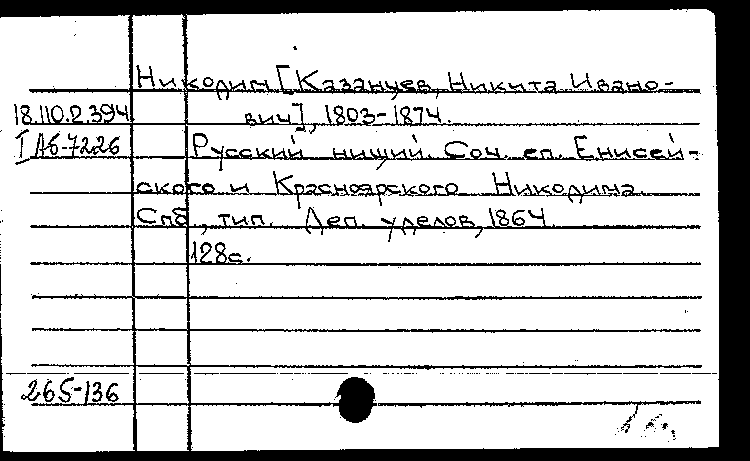 Никодим [Казанцев, Никита Ивано-
18.110.2.394 вич], 1803-1874.
I Аб-7226 Русский нищий. Соч. еп. Енисей-
ского и Красноярского Никодима.
Спб., тип. Деп. уделов, 1864.
128с.
265-136